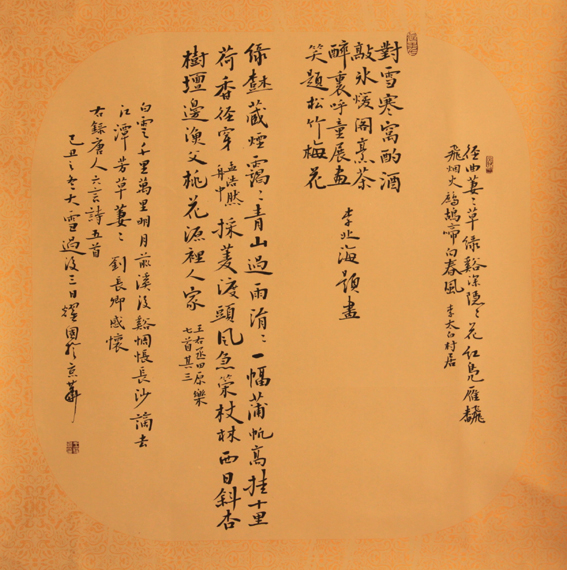 徑曲萋〻草绿谿深隱〻花红凫雁翻
飛烟火鷓鴣啼向春風 李太白村居
對雪寒窩酌酒
敲氷煖閣烹茶
醉裏呼童展畫
笑題松竹梅花
李北海題畫
绿藏煙靄〻青山過雨涓〻一幅蒲帆高挂十里
荷香径穿 孟浩然
舟中 採菱渡頭風急策杖林西日斜杏
樹壇邊漁父桃花源裡人家 王右丞田原樂
七首其三
白雲千里萬里明月前溪後谿惆悵長沙謫去
江潭芳草萋〻 劉長卿感懷
右錄唐人六言詩五首
己丑之冬大雪過後三日耀國於京華